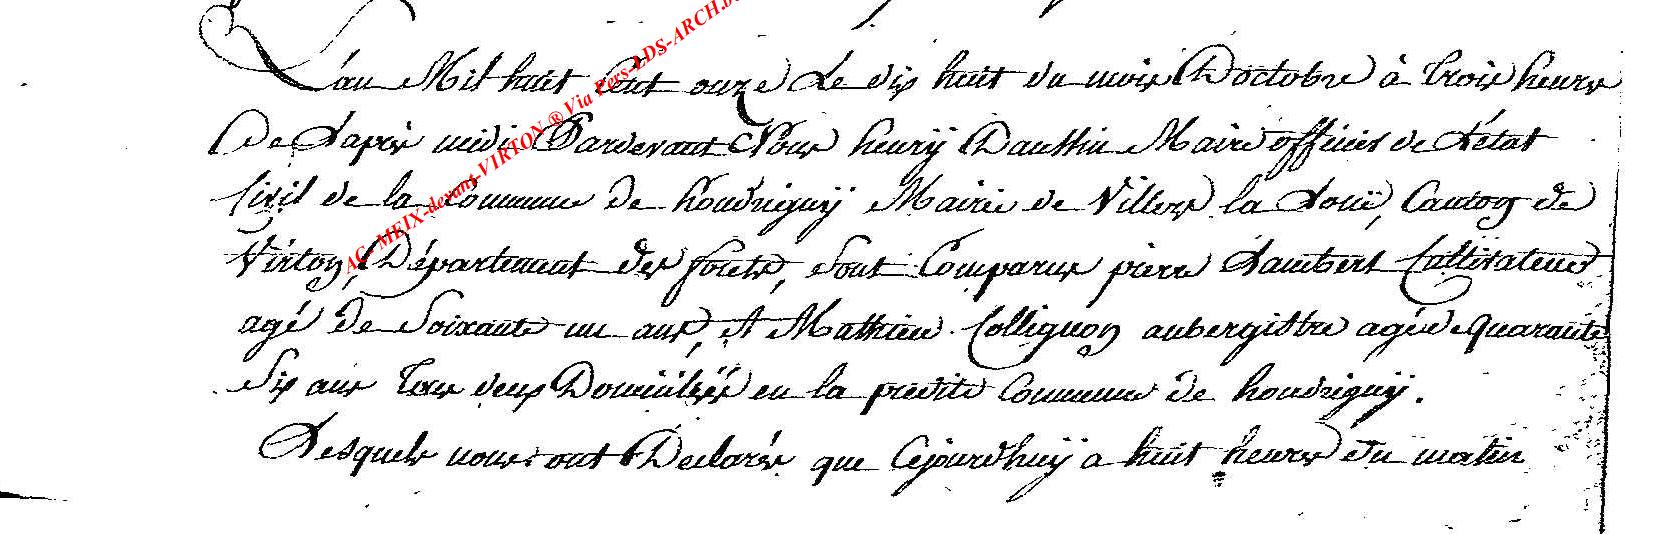 L'an Mil huit Cent onze Le dix huit du mois D'octobre à trois heures
De L'aprés midi Pardevant Nous henrÿ Dauthin Maire officier de L'état
Civil de la Commune de houdrignÿ Mairie de Villers la Loüe, Canton de
Virton, Département des forêts, Sont Comparus pierre Lambert Cultivateur
agé de Soixante un ans, et Mathieu Collignon aubergistre agé de quarante
Six ans tous deux Domiciliés en la predite Commune de houdrignÿ.
Lesquels nous ont Declarés que Cejourd'huÿ a huit heures du matin
AC- MEIX-devant-VIRTON ® Via Pers-LDS-ARCH.